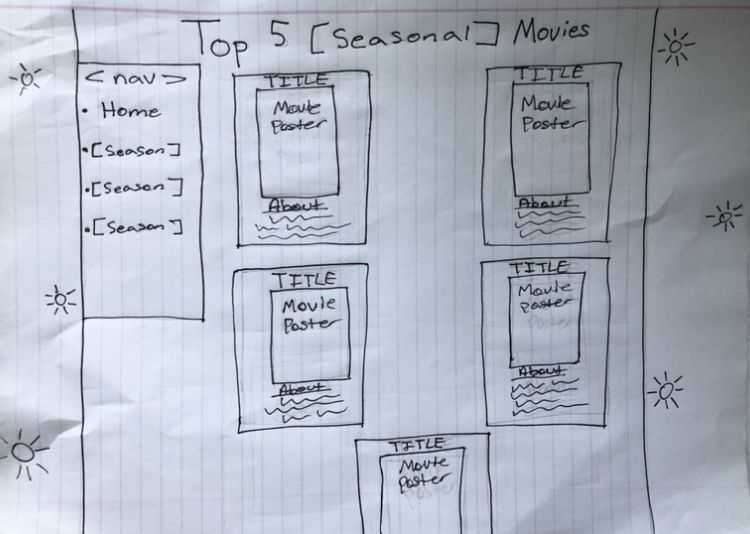 Top 5 [Seasonal] Movies
<nav>
• Home
• [Season]
• [Season]
• [Season]
TITLE
Movie
Poster
About
TITLE
Movie
Poster
About
TITLE
Movie
Poster
About
TITLE
Movie
Poster
About
TITLE
Movie
Poster